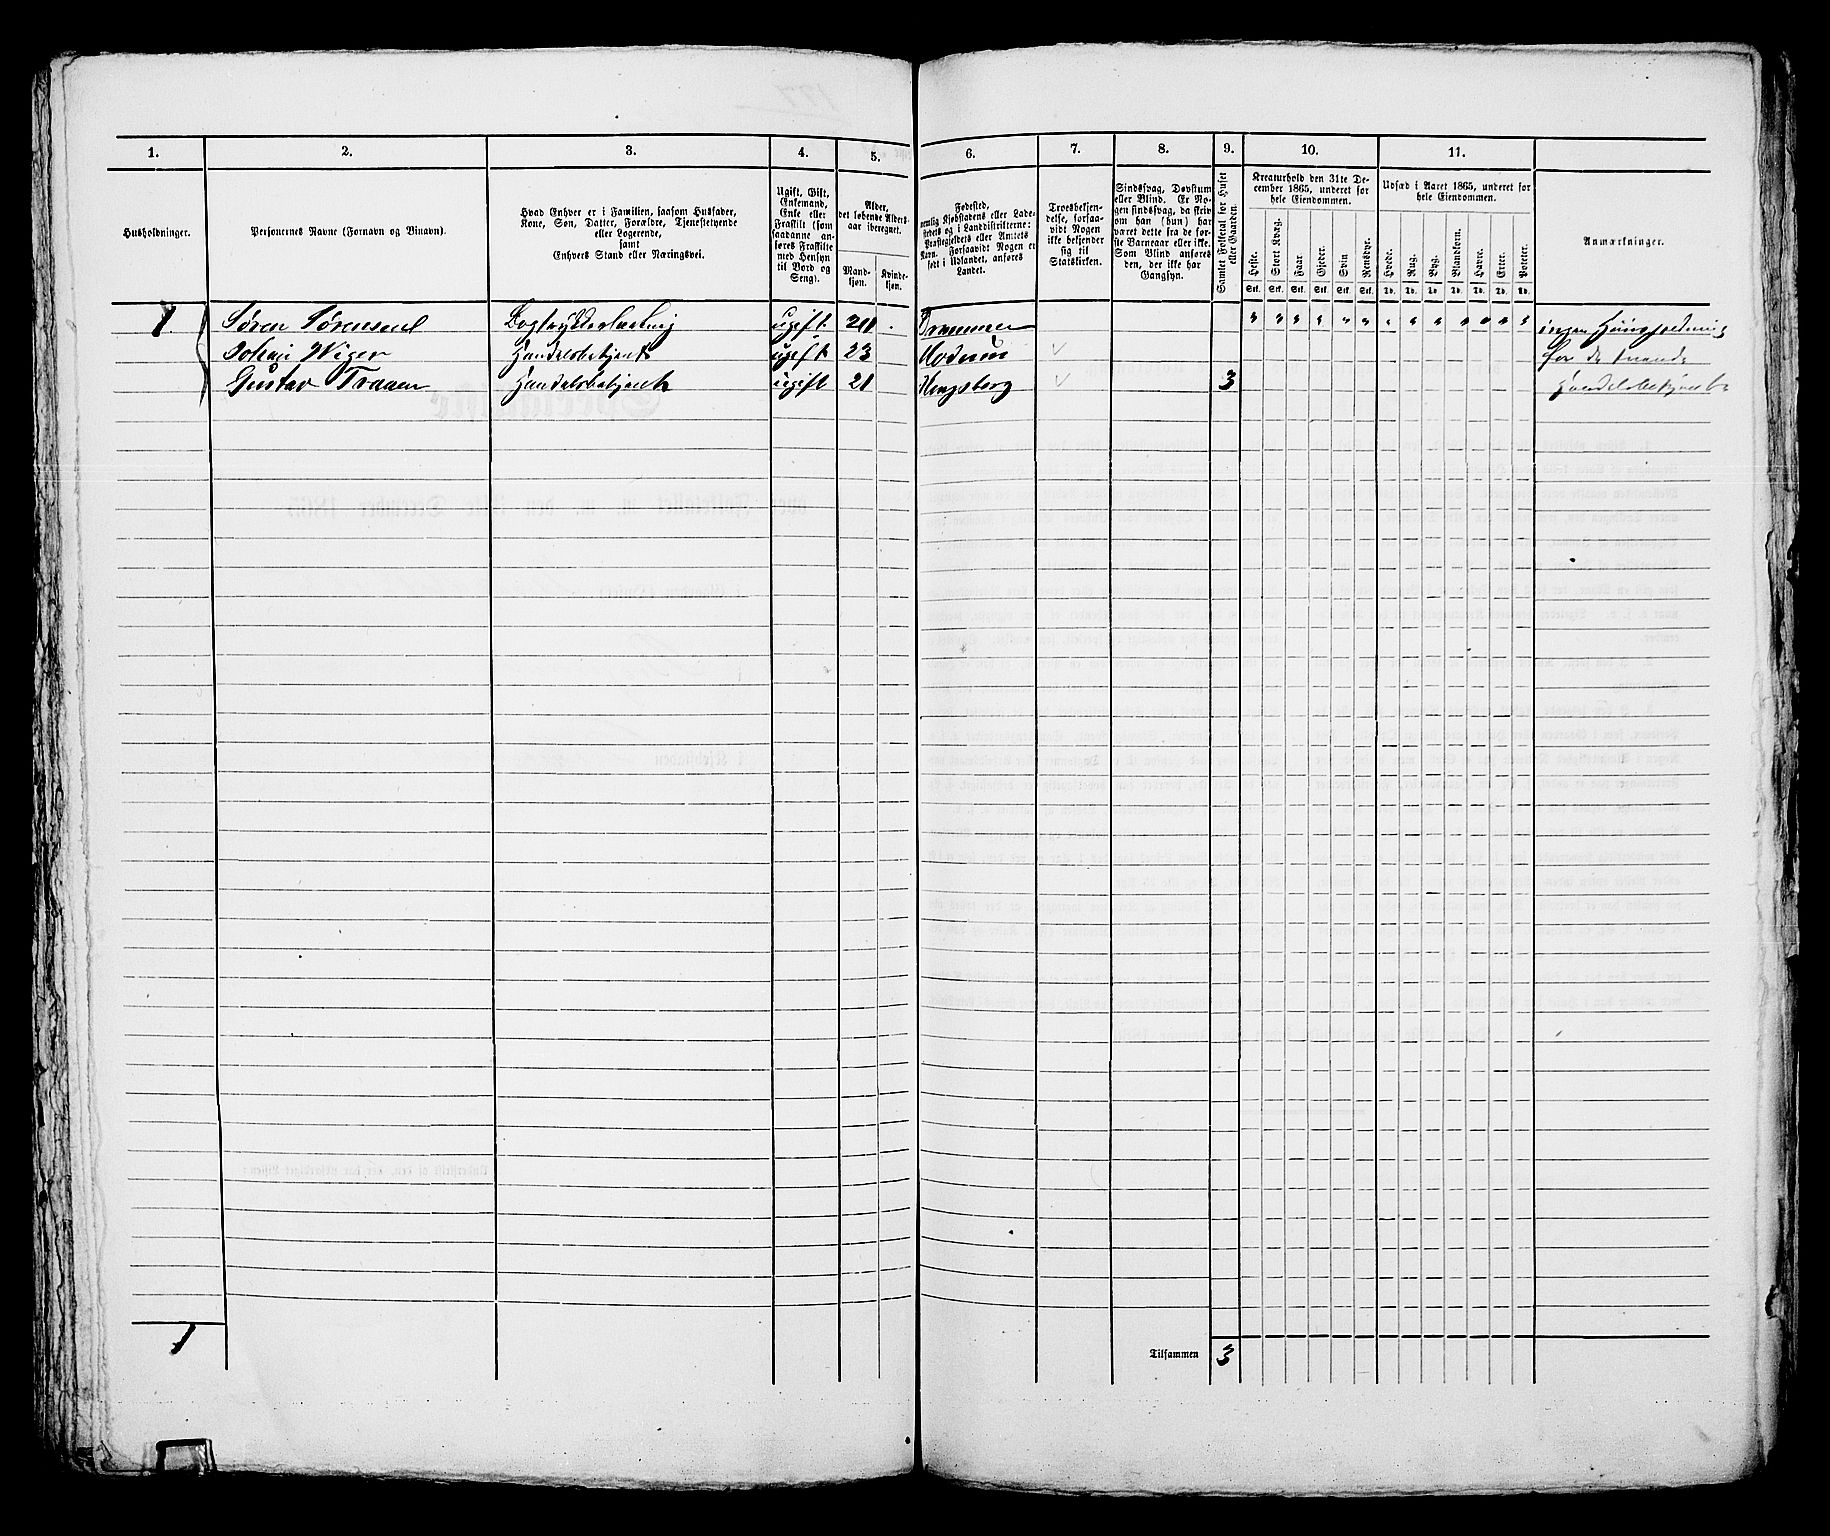 1. 2. 3. 4. 5. 6. 7. 8. 9. 10. 11.
Husholdninger.
Personernes Navne (Fornavn og Tilnavn).
Hvad Enhver er i Familien, saasom Husfader,
Kone, Søn, Datter, Forældre, Tjenestetyende
eller Logerende,
samt
Enhvers Stand eller Næringsvei.
Ugift, Gift,
Enkemand,
Enke eller
Fraskilt (som
saadanne an-
føres Fraskilte
med Hensyn
til Bord og
Seng).
Alder,
det løbende Alders-
aar iberegnet.
Mand-
kjøn.
Kvinde-
kjøn.
Fødested,
nemlig Kjøbstadens eller Lade-
stedets og i Landdistrikterne:
Præstegjeldets eller Amtets
Navn. Forsaavidt Nogen er
født i Udlandet, anføres
Landet.
Troesbekjen-
delse, forsaa-
vidt Nogen
ikke bekjender
sig til
Statskirken.
Sindssvag, Døvstum
eller Blind. Er No-
gen sindssvag, da skriv
om han (hun) har
været dette fra de før-
ste Barneaar eller ikke.
Som Blind anføres
den, der ikke har
Gangsyn.
Samlet Folketal for Huset
eller Gaarden.
Kreaturhold den 31te De-
cember 1865, underet for
hele Eiendommen.
Heste. Stort Kvæg. Faar. Gjeder. Svin Rensdyr.
Stk. Stk. Stk. Stk. Stk. Stk.
Udsæd i Aaret 1865, underet for
hele Eiendommen.
Hvede. Rug. Byg. Blandkorn. Havre. Erter. Poteter.
Td. Td. Td. Td. Td. Td. Td.
Anmærkninger.
1 Søren Sørensen ugift Drammen
Johan Wiger Handelsbetjent ugift 23 Modum
Gustav Traaen Handelsbetjent ugift 21 Kongsberg 3
Handelsbetjente
1
Tilsammen 3